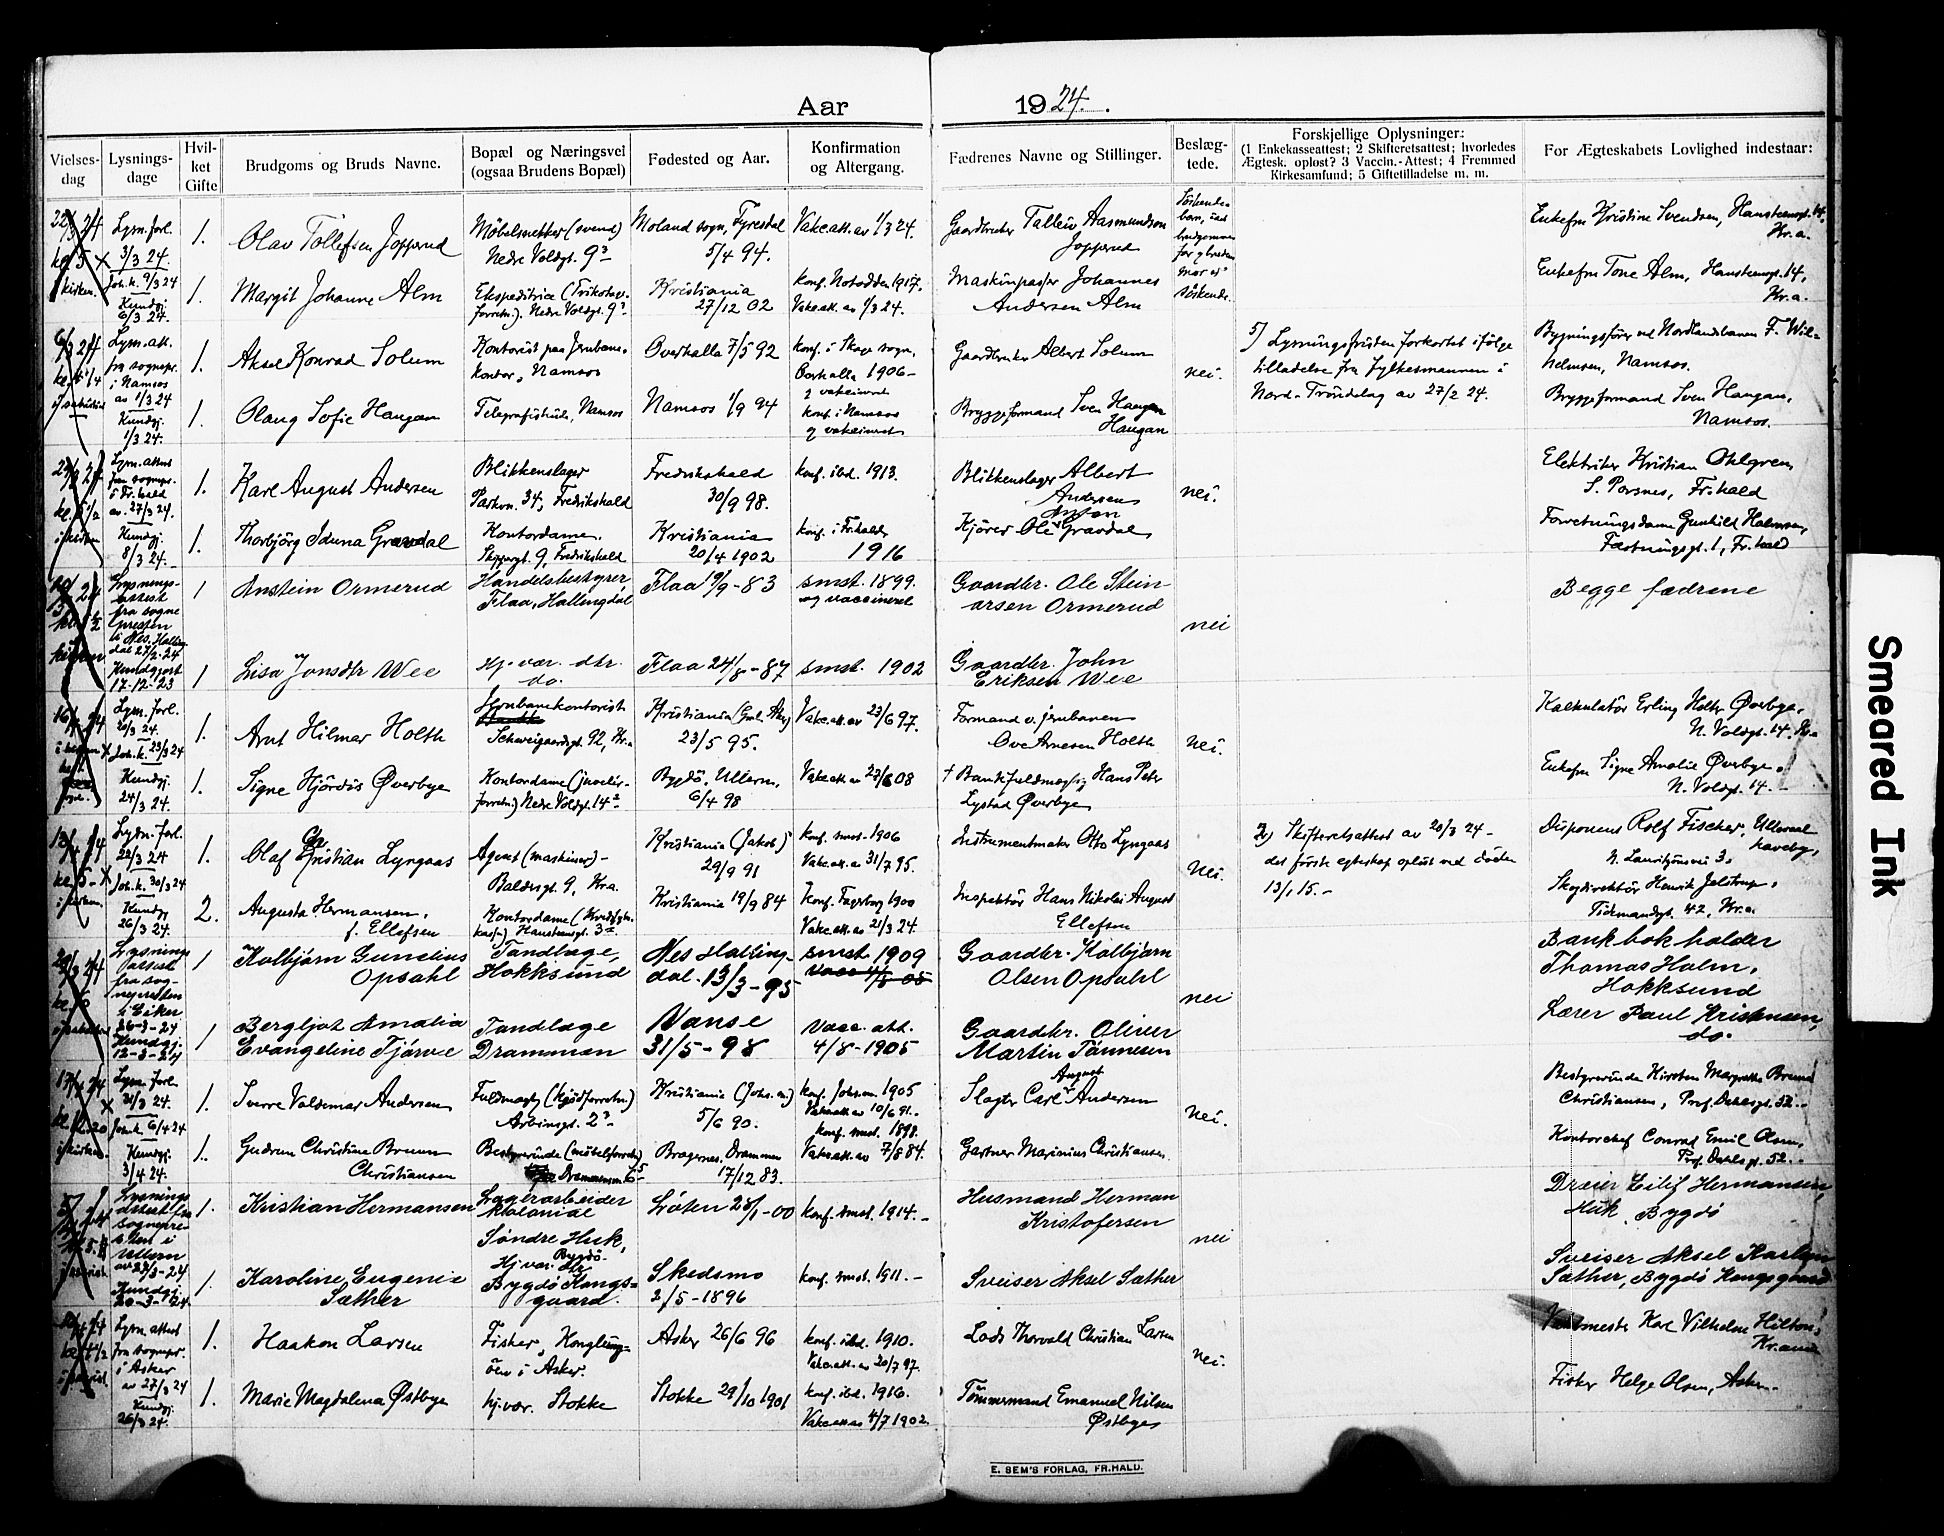 Aar 1924.
Vielses-dag
Lysnings-dage
Hvil-ket Gifte
Brudgoms og Bruds Navne.
Bopæl og Næringsvei (ogsaa Brudens Bopæl)
Fødested og Aar.
Konfirmation og Altergang.
Fædrenes Navne og Stillinger.
Beslæg-tede.
Forskjellige Oplysninger:
(1 Enkekasseattest; 2 Skifteretsattest; hvorledes
Ægtesk. opløst? 3 Vaccin.-Attest; 4 Fremmed
Kirkesamfund; 5 Giftetilladelse m. m.
For Ægteskabets Lovlighed indestaar:
Lysn. forl.
3/3 24.
Joh. k. 9/3 24
Kundgj.
6/3 24.
1. Olav Tollefsen Jopperud
Møbelsnekker (svend)
Nedre Voldgt. 9
Moland sogn, Fyresdal
5/4 94.
Vakc.att. av 1/3 24.
Gaardbruker Talleiv Aasmundson
Jopperud
Enkefru Kristine Svendsen, Hansteensgt. 14,
Kr.a.
1. Margit Johanne Alm
Ekspeditrice (Trikotag.
forretn.). Nedre Voldgt. 9
Kristiania
27/12 02
konf. Notodden 1917.
Vakc.att. av 1/3 24.
Maskinpasser Johannes
Andersen Alm
søskende.
Enkefru Tone Alm, Hansteensgt. 14,
Kr.a.
Lysn. att.
fra sognepr.
i Namsos
av 1/3 24
Kundgj.
1/3 24.
1. Aksel Konrad Solum
Kontorist paa Jernbane-
kontor, Namsos
Overhalla 7/5 92
konf. i Skage sogn,
Overhalla 1906 –
Gaardbruker Albert Solum
nei.
5) Lysningsfristen forkortet ifølge
tilladelse fra fylkesmannen i
Nord-Trøndelag av 27/2 24.
Bygningsfører ved Nordlandsbanen F. Wil-
helmsen, Namsos.
1. Olaug Sofie Haugan
Namsos 1/9 94
konf. i Namsos
Bryggeformand Sven Haugan
Haugan
Bryggeformand Sven Haugan,
Namsos.
Lysn. attest
fra sognepr.
i Fr.hald
av. 27/3 24.
Kundgj.
8/3 24.
1. Karl August Andersen
Blikkenslager
Parkvn. 34, Fredrikshald
Fredrikshald
30/9 98.
konf. ibd. 1913.
Blikkenslager Albert
Andersen
nei.
Elektriker Kristian Ohlgren,
Fr.hald
1. Thorbjørg Iduna Gravdal
Kontordame.
9, Fredrikshald
Kristiania
20/4 1902
konf. i Fr.hald
1916
Kjører Ole Anton Gravdal
Forretningsdame Gunhild Halmsen,
Fæstningsgt. 1, Fr.hald
Lysnings-
attest
fra sogne
presten
i Nes. Halling
dal 27/2-24
Kundgjort
17-12-23
1 Anstein Ormerud
Handelsbestyrer,
Flaa, Hallingdal
Flaa 19/9-83
smst. 1899.
og vaccineret
Gaardbr. Ole Stein
arsen Ormerud
nei
Begge fædrene
1 Lisa Jonsdtr Wee
Hj. vær. dtr.
do.
Flaa 24/8-87
smst. 1902
Gaardbr. John
Eriksen Wee
Lysn. forl.
20/3 24.
Joh. k. 23/3 24
Kundgj.
24/3 24.
1. Arnt Hilmar Holth
Jernbanekontorist
Schweigaardsgt. 92, Kr.a
Kristiania (Gml. Aker)
23/5 95.
Vakc.att. av 23/6 97.
Formand v. jernbanen
Ove Arnesen Holth
nei.
Kalkulatør Erling Holter Øverbye,
N. Voldgt. 14, Kr.a
1. Signe Hjørdis Øverbye
Kontordame (juveler-
forretn.) Nedre Voldgt. 14
Bygdø, Ullern,
6/4 98
Vakc.att. av 27/6 08
† Bankfuldmægtig Hans Peter
Lystad Øverbye
Enkefru Signe Amalie Øverbye,
N. Voldgt. 14.
Lysn. forl.
22/3 24
Joh. k. 30/3 24
Kundgj.
26/3 24.
1. Olaf Christian Lyngaas
Agent (maskiner) –
Baldersgt. 9, Kr.a.
Kristiania (Jakob)
29/9 91
konf. smst. 1906
Vakc.att. av 31/7 95.
Instrumentmaker Otto Lyngaas
Nei.
2) Skifteretsattest av 20/3 24 –
det første egteskap opløst ved døden
13/1 15. –
Disponent Rolf Fischer, Ullevaal
haveby,
2. Augusta Hermansen,
f. Ellefsen
Kristiania 19/9 84
konf. Fagerborg 1900
Vakc.att. av 21/3 24.
Inspektør Hans Nikolai August
Ellefsen
Skogdirektør Henrik Jelstrup,
Tidemandsgt. 42, Kr.a.
Lysnings
attest
fra sog-
nepresten
i Eiker
26-3-24
Kundgj.
12-3-24
1 Kolbjørn Gunelius
Opsahl
Tandlæge,
Hokksund
Nes Halling-
dal. 13/3-95
smst. 1909
Gaardbr. Kolbjørn
Olsen Opsahl
nei
Bankbokholder
Thomas Holm,
Hokksund
1 Bergljot Amalia
Evangeline Tjørve
Tandlæge
Drammen
Vanse
31/5-98
Vacc. att.
4/8-1905
Gaardbr. Oliver
Martin Tønnesen
Lærer Paul Kristensen,
do.
Lysn. forl.
31/3 24.
Joh. k. 6/4 24
Kundgj.
3/4 24.
1. Sverre Valdemar Andersen
Fuldmægtig (kjødforretn.)
Arbinsgt. 2
Kristiania (Johs. m.)
5/6 90.
konf. Johs. m. 1905
Vakc.att. av 10/6 91.
Slagter Carl August Andersen
nei.
Bestyrerinde Kirsten Margrethe Bruun
Christiansen, Prof. Dahlsgt. 52.
1. Gudrun Christine Bruun
Christiansen
Bestyrerinde (møbelforretn.)
Drammensvn. 65
Bragernes, Drammen
17/12 83.
konf. smst. 1898.
Vakc.att. av 7/8 84.
Gartner Marinius Christiansen
Kontorchef Conrad Emil Olsen,
Prof. Dahlsgt. 52.
Lysnings
attest fra
sognepre-
sten i
Ullern
av 22/3-24
Kundgj.
20-3-24.
1. Kristian Hermansen
Lagerarbeider
kolonial
Søndre Huk,
Bygdø
Løten 28/1-00
konf. smst. 1914. –
Husmand Herman
Kristofersen
nei
Dreier Eilif Hermansen
Huk, Bygdø
1. Karoline Eugenie
Sæther
Hj. vær.
Bygdø Kongs-
gaard.
Skedsmo
2/5-1896
konf. smst. 1911. –
Sveiser Aksel Sæther
Sveiser Aksel Karlsen
Sæther, Bygdø Kongsgaard
Lysn. attest
fra sognepr.
i Asker
av 27/3 24
Kundgj.
26/3 24.
1. Haakon Larsen
Fisker, Konglung-
øen i Asker.
Asker 26/6 96
konf. ibd. 1910.
Vakc.att. av 20/7 97.
Lods Thorvald Christian Larsen
nei.
Karl Vilhelm Hilton,
Kr.ania
1. Marie Magdalena Østbye
hj. vær. Stokke
Stokke 29/10 1901
konf. ibd. 1916.
Vakc.att. av 4/7 1902.
Tømmermand Emanuel Nilsen
Østbye
Fisker Helge Olsen, Asker.
E. SEM'S FORLAG, FR.HALD.
Smeared Ink